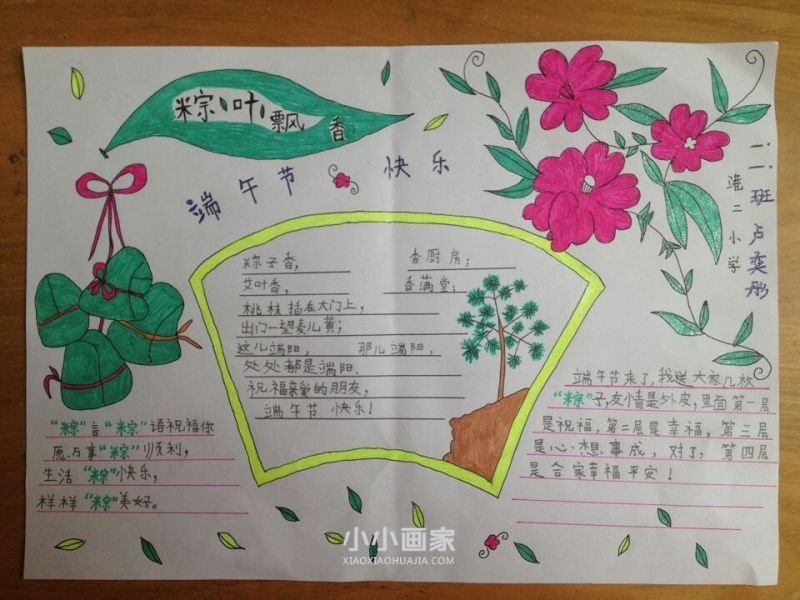 粽叶飘香
端午节 快乐
二.二班 卢奕彤
港二小学
粽子香, 香厨房;
艾叶香, 香满堂;
桃枝插在大门上,
出门一望麦儿黄;
这儿端阳, 那儿端阳,
处处都是端阳.
祝福亲爱的朋友,
端午节快乐!
“粽”言“粽”语祝福你
愿万事“粽”顺利,
生活“粽”快乐,
样样“粽”美好。
端午节来了,我送大家几枚
“粽”子友情是外皮,里面第一层
是祝福,第二层是幸福,第三层
是心想事成,对了,第四层
是合家幸福平安!
小小画家
XIAOXIAOHUAJIA.COM